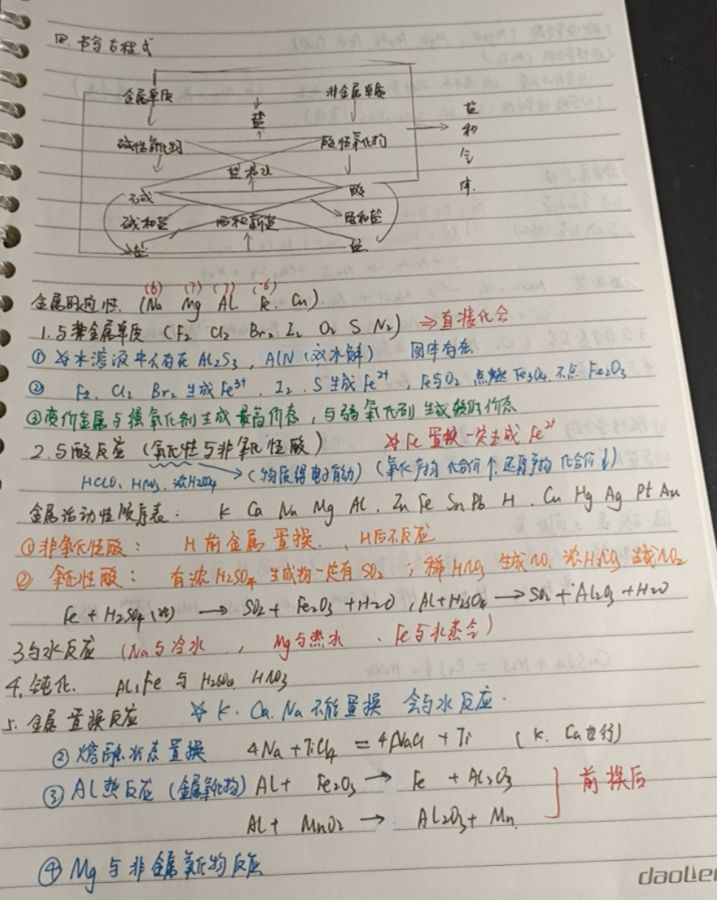 四.书写方程式
金属单质 非金属单质
盐
碱性氧化物 酸性氧化物
盐和水
碱 酸
碱和盐 两种新盐 酸和盐
盐 盐
盐和气体.
(8) (7) (7) (6)
金属的反应性. (Na Mg Al Fe. Cu)
1.与非金属单质 (F2 Cl2 Br2 I2 O2 S N2) ⇒直接化合
① 水溶液中不存在 Al2S3, AlN (双水解) 固体有在
② F2. Cl2 Br2 生成Fe3+, I2. S生成Fe2+, Fe与O2 点燃 Fe3O4. 不点 Fe2O3
③变价金属与强氧化剂生成最高价态, 与弱氧化剂生成较低价态
2.与酸反应 (氧化性与非氧化性酸) Fe置换一定生成Fe2+
HClO. HNO3. 浓H2SO4 → (物质得电子有动) (氧化产物 化合价↑. 还原产物 化合价↓)
金属活动性顺序表: K Ca Na Mg Al. Zn Fe Sn Pb H. Cu Hg Ag Pt Au
①非氧化性酸: H前金属置换., H后不反应
② 氧化性酸: 有浓H2SO4 生成物一定有SO2; 稀HNO3 生成NO. 浓HNO3 生成NO2
Fe + H2SO4(浓) → SO2 + Fe2O3 + H2O, Al+H2SO4 → SO2 + Al2O3 + H2O
3与水反应 (Na与冷水, Mg与热水. Fe与水蒸气)
4.钝化. Al、Fe与H2SO4. HNO3
5.金属置换反应 K. Ca. Na不能置换 会与水反应.
② 熔融状态置换 4Na+TiCl4 = 4NaCl + Ti (K. Ca也行)
③ Al热反应 (金属氧化物) Al+ Fe2O3 → Fe + Al2O3
Al + MnO2 → Al2O3 + Mn. } 前换后
④ Mg与非金属氧化物反应
daolin